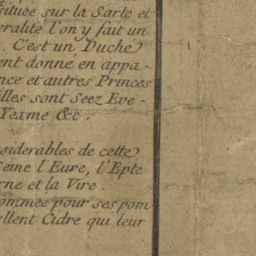 située sur la Sarte et
eralité l'on y fait un
. C'est un Duché
ent donné en appa-
nce et autres Princes
illes sont Seez Eve-
Yeame &c.
siderables de cette
Seine l'Eure, l'Epte
rne et la Vire.
ommée pour ses pom
ellent Cidre qui leur